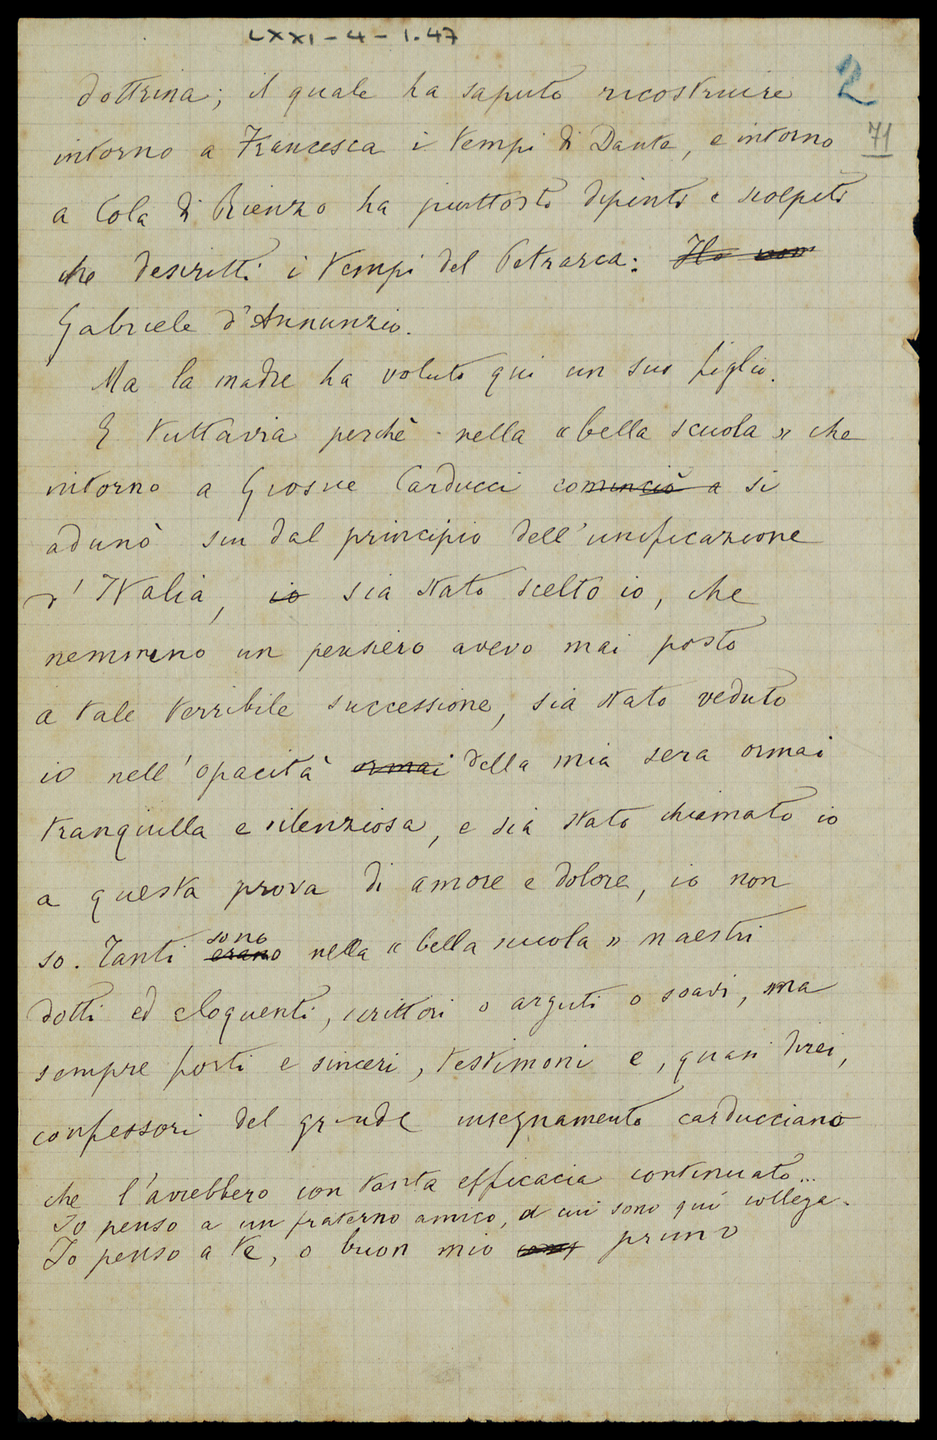 LXXI-4-1.47
2
71
dottrina; il quale ha saputo ricostruire
intorno a Francesca i tempi di Dante, e intorno
a Cola di Rienzo ha piuttosto dipinto e scolpito
che descritti i tempi del Petrarca: Ho non
Gabriele d'Annunzio.
Ma la madre ha voluto qui un suo figlio.
E tuttavia perchè nella «bella scuola» che
intorno a Giosue Carducci cominciò a si
adunò sin dal principio dell'unificazione
d'Italia, io sia stato scelto io, che
nemmeno un pensiero avevo mai posto
a tale terribile successione, sia stato veduto
io nell'opacità ormai della mia sera ormai
tranquilla e silenziosa, e sia stato chiamato io
a questa prova di amore e dolore, io non
sono
so. Tanti erano nella «bella scuola» maestri
dotti ed eloquenti, scrittori o arguti o soavi, ma
sempre forti e sinceri, testimoni e, quasi direi,
confessori del grande insegnamento carducciano
che l'avrebbero con tanta efficacia continuato...
Io penso a un fraterno amico, di cui sono qui collega.
Io penso a te, o buon mio primo